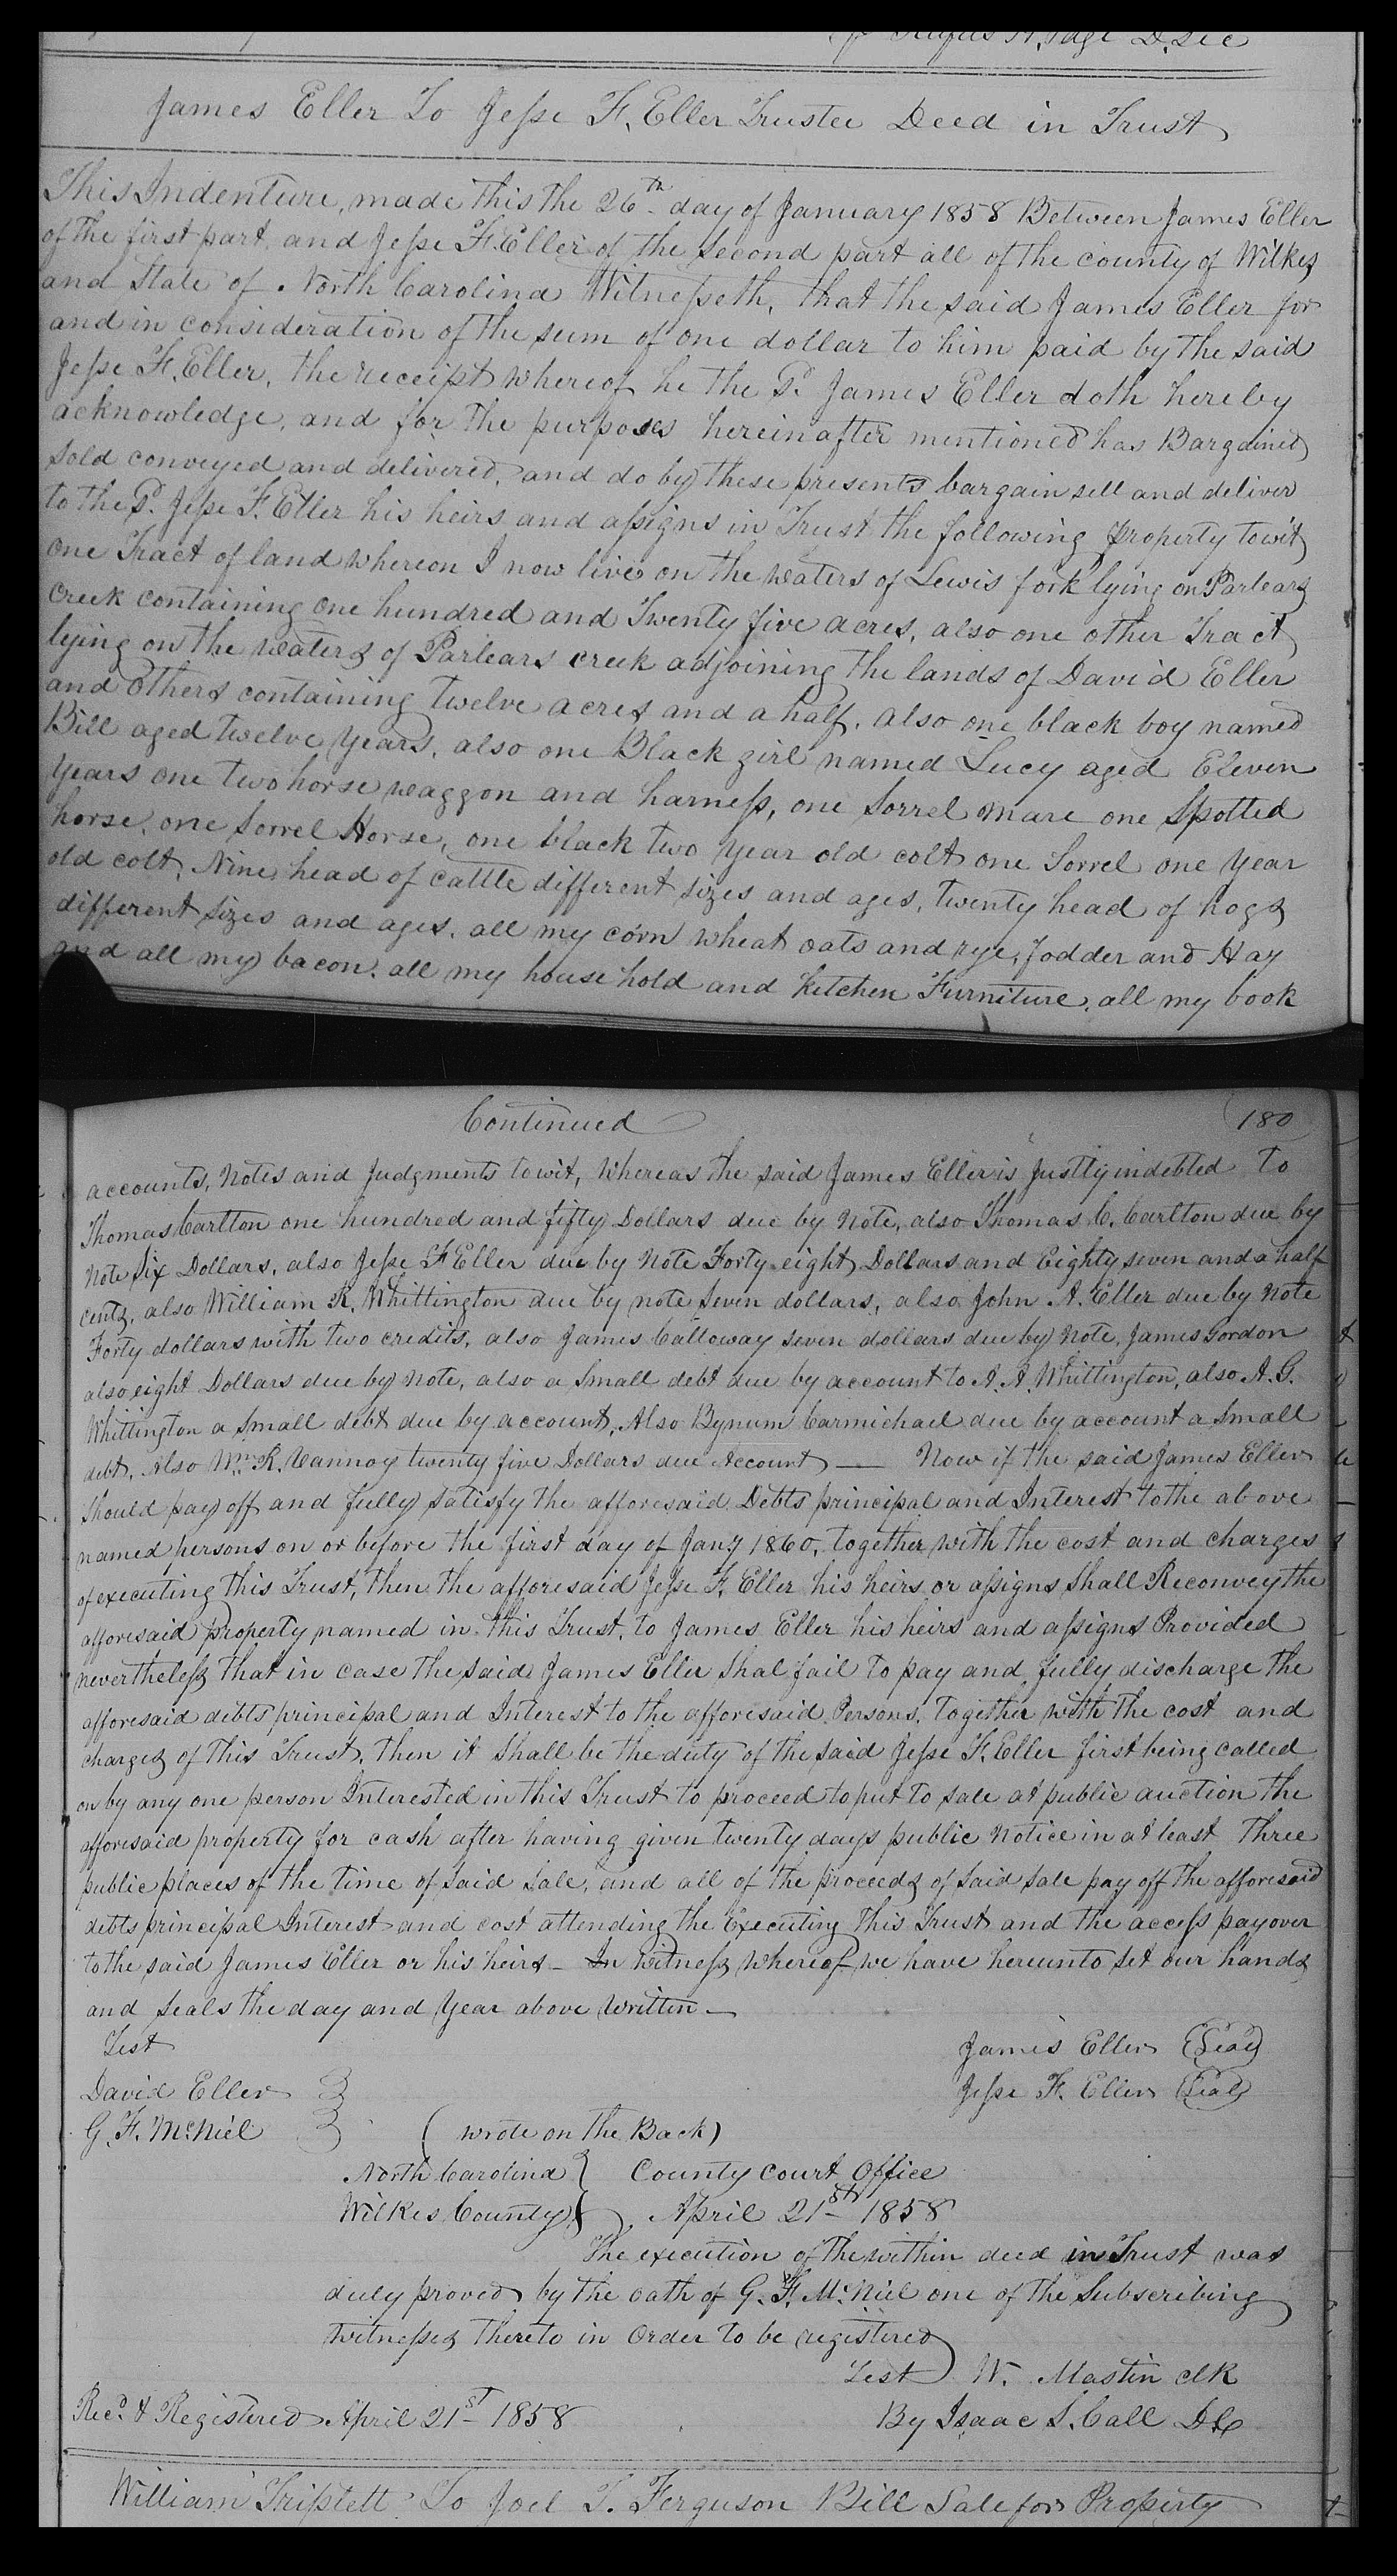 Rufus A. Page D. Sec
James Eller To Jesse F. Eller Trustee Deed in Trust
This Indenture, made this the 26th day of January 1858 Between James Eller
of the first part, and Jesse F. Eller of the second part all of the county of Wilkes
and State of North Carolina Witnesseth, that the said James Eller for
and in consideration of the sum of one dollar to him paid by the said
Jesse F. Eller, the receipt whereof he the Sd. James Eller doth hereby
acknowledge, and for the purposes hereinafter mentioned has Bargained
sold conveyed and delivered, and do by these presents bargain sell and deliver
to the Sd. Jesse F. Eller his heirs and assigns in Trust the following property towit
one Tract of land whereon I now live on the waters of Lewis fork lying on Parlears
creek containing one hundred and Twenty five acres, also one other Tract
lying on the waters of Parlears creek adjoining the lands of David Eller
and others containing twelve acres and a half. also one black boy named
Bill aged twelve years, also one Black girl named Lucy aged Eleven
years one two horse waggon and harness, one sorrel mare one Spotted
horse, one sorrel Horse, one black two year old colt one Sorrel one year
old colt, Nine head of cattle different sizes and ages, twenty head of hogs
different sizes and ages. all my corn wheat oats and rye, fodder and Hay
and all my bacon. all my house hold and kitchen Furniture, all my book
Continued 180
accounts, Notes and Judgments towit, Whereas the said James Eller is Justly indebted to
Thomas Carlton one hundred and fifty Dollars due by Note, also Thomas C. Carlton due by
Note six Dollars, also Jesse F Eller due by Note Forty eight Dollars and Eighty seven and a half
cents, also William R. Whittington due by note seven dollars, also John A. Eller due by Note
Forty dollars with two credits, also James Calloway seven dollars due by Note, James Gordon
also eight Dollars due by Note, also a small debt due by account to A. A. Whittington, also A. G.
Whittington a small debt due by account, Also Bynum Carmichael due by account a small
debt, Also Wm. R. Vannoy twenty five Dollars due Account — Now if the said James Eller
should pay off and fully satisfy the afforesaid Debts principal and Interest to the above
named persons on or before the first day of Jany 1860, together with the cost and charges
of executing this Trust, then the afforesaid Jesse F. Eller his heirs or assigns Shall Reconvey the
afforesaid property named in this Trust, to James Eller his heirs and assigns Provided
nevertheless that in case the said James Eller Shal fail to pay and fully discharge the
afforesaid debts principal and Interest to the afforesaid Persons, together with the cost and
charges of this Trust, then it shall be the duty of the said Jesse F. Eller first being called
on by any one person Interested in this Trust to proceed to put to sale at public auction the
afforesaid property for cash after having given twenty days public Notice in at least three
public places of the time of said sale, and all of the proceeds of said sale pay off the afforesaid
debts principal Interest and cost attending the Executing this Trust and the access pay over
to the said James Eller or his heirs — In witness whereof we have hereunto set our hands
and seals the day and year above written —
Test James Eller (Seal)
David Eller Jesse F. Eller (Seal)
G. F. McNiel (wrote on the Back)
North Carolina } County Court Office
Wilkes County } April 21st 1858
The execution of the within deed in Trust was
duly proved by the oath of G. F. McNiel one of the Subscribing
witnesses thereto in order to be registered
Test W. Mastin clk
Recd. & Registered April 21st 1858 By Isaac S. Call DC
William Triplett To Joel T. Ferguson Bill Sale for Property